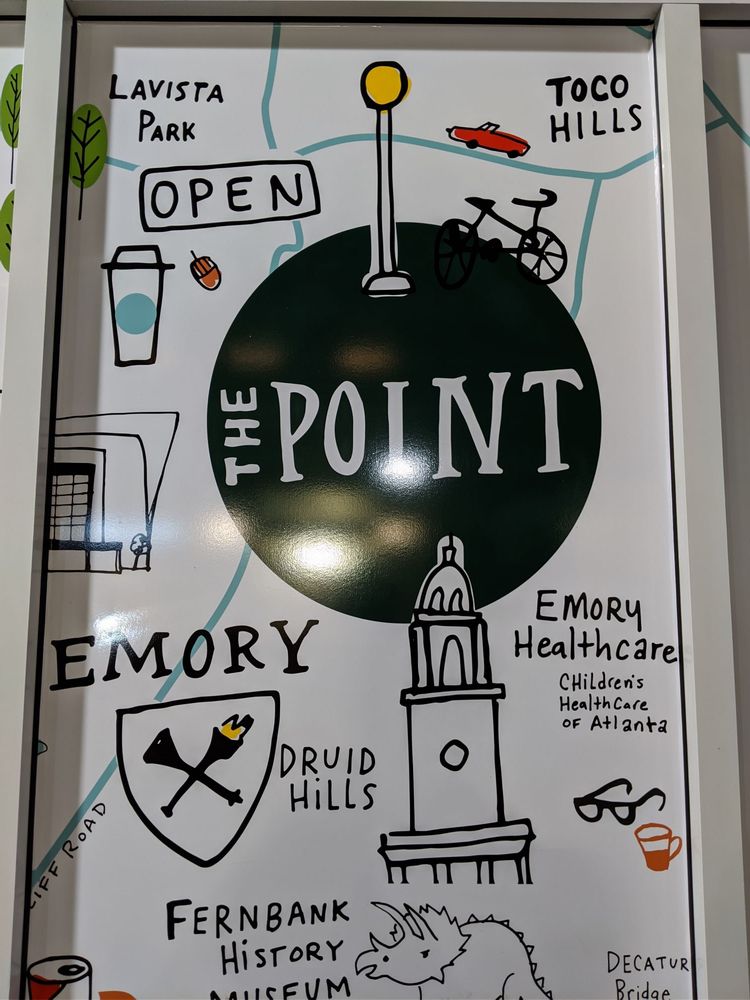 LAVISTA
PARK
TOCO
HILLS
OPEN
THE POINT
EMORY
EMORY
Healthcare
CHildren's
HealthCare
OF Atlanta
DRUID
HiLLS
ROAD
FERNBANK
HiSTORY
MUSEUM
DECATUR
Bridge